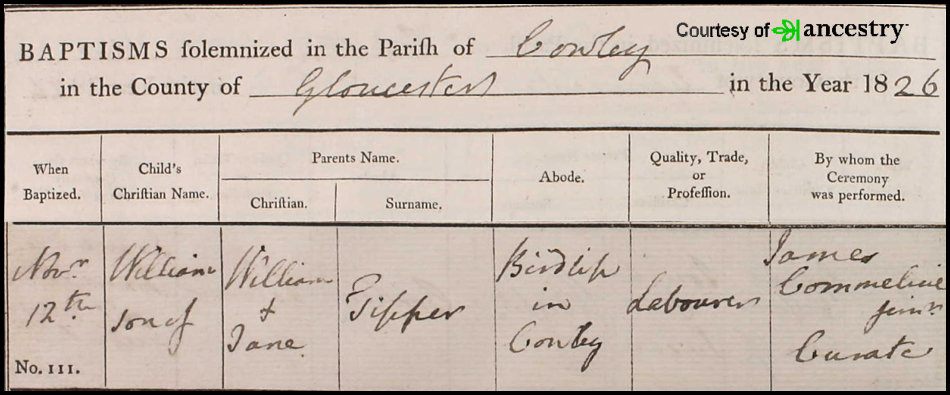 Courtesy of ancestry
BAPTISMS ſolemnized in the Pariſh of Cowley
in the County of Gloucester in the Year 1826
When
Baptized.
Child's
Chriſtian Name.
Parents Name.
Chriſtian.
Surname.
Abode.
Quality, Trade,
or
Profeſſion.
By whom the
Ceremony
was performed.
Novr
12th
No. 111.
William
son of
William
&
Jane
Tipper
Birdlip
in
Cowley
Labourer
James
Commeline
junr
Curate